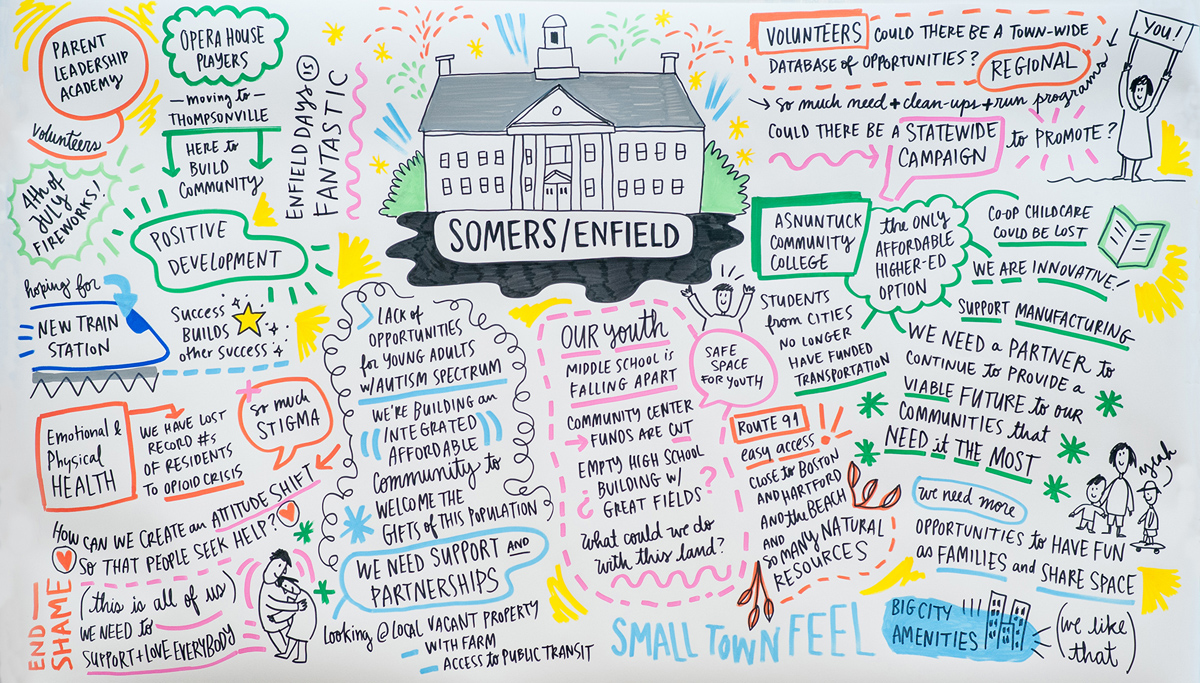 PARENT
LEADERSHIP
ACADEMY
Volunteers
OPERA HOUSE
PLAYERS
— MOVING to —
THOMPSONVILLE
HERE to
BUILD
COMMUNITY
ENFIELD DAYS IS
FANTASTIC
4th of
JULY
FIREWORKS!
POSITIVE
DEVELOPMENT
hoping for
NEW TRAIN
STATION
Success
BUILDS
other Success
SOMERS/ENFIELD
VOLUNTEERS COULD THERE BE A TOWN-WIDE
DATABASE of OPPORTUNITIES?
REGIONAL
→ So much need + clean-ups + run programs
COULD THERE BE A STATEWIDE
CAMPAIGN
to PROMOTE?
YOU!
ASNUNTUCK
COMMUNITY
COLLEGE
the ONLY
AFFORDABLE
HIGHER-ED
OPTION
CO-OP CHILDCARE
COULD BE LOST
WE ARE INNOVATIVE!
SUPPORT MANUFACTURING
STUDENTS
from CITIES
NO LONGER
HAVE FUNDED
TRANSPORTATION
WE NEED a PARTNER to
CONTINUE to PROVIDE a
VIABLE FUTURE to OUR
COMMUNITIES that
NEED it THE MOST
Emotional &
Physical
HEALTH
WE HAVE LOST
RECORD #s
OF RESIDENTS
TO OPIOID CRISIS
So much
STIGMA
HOW CAN WE CREATE an ATTITUDE SHIFT
SO THAT PEOPLE SEEK HELP?
END
SHAME
(this is all of us)
WE NEED to
SUPPORT + LOVE EVERYBODY
LACK of
OPPORTUNITIES
for YOUNG ADULTS
W/AUTISM SPECTRUM
WE'RE BUILDING an
INTEGRATED
AFFORDABLE
Community to
WELCOME THE
GIFTS of THIS POPULATION
WE NEED SUPPORT AND
PARTNERSHIPS
Looking @ LOCAL VACANT PROPERTY
– WITH FARM
– ACCESS to PUBLIC TRANSIT
OUR YOUTH
MIDDLE SCHOOL is
FALLING APART
COMMUNITY CENTER
→ FUNDS ARE CUT
EMPTY HIGH SCHOOL
BUILDING W/
¿ GREAT FIELDS?
What could we do
with this land?
SAFE
SPACE
FOR YOUTH
ROUTE 91
easy access!
CLOSE to BOSTON
AND HARTFORD
AND the BEACH
AND
SO MANY NATURAL
RESOURCES
we need more
OPPORTUNITIES to HAVE FUN
as FAMILIES and SHARE SPACE
yeah
SMALL TOWN FEEL
BIG CITY
AMENITIES
(we like
that)